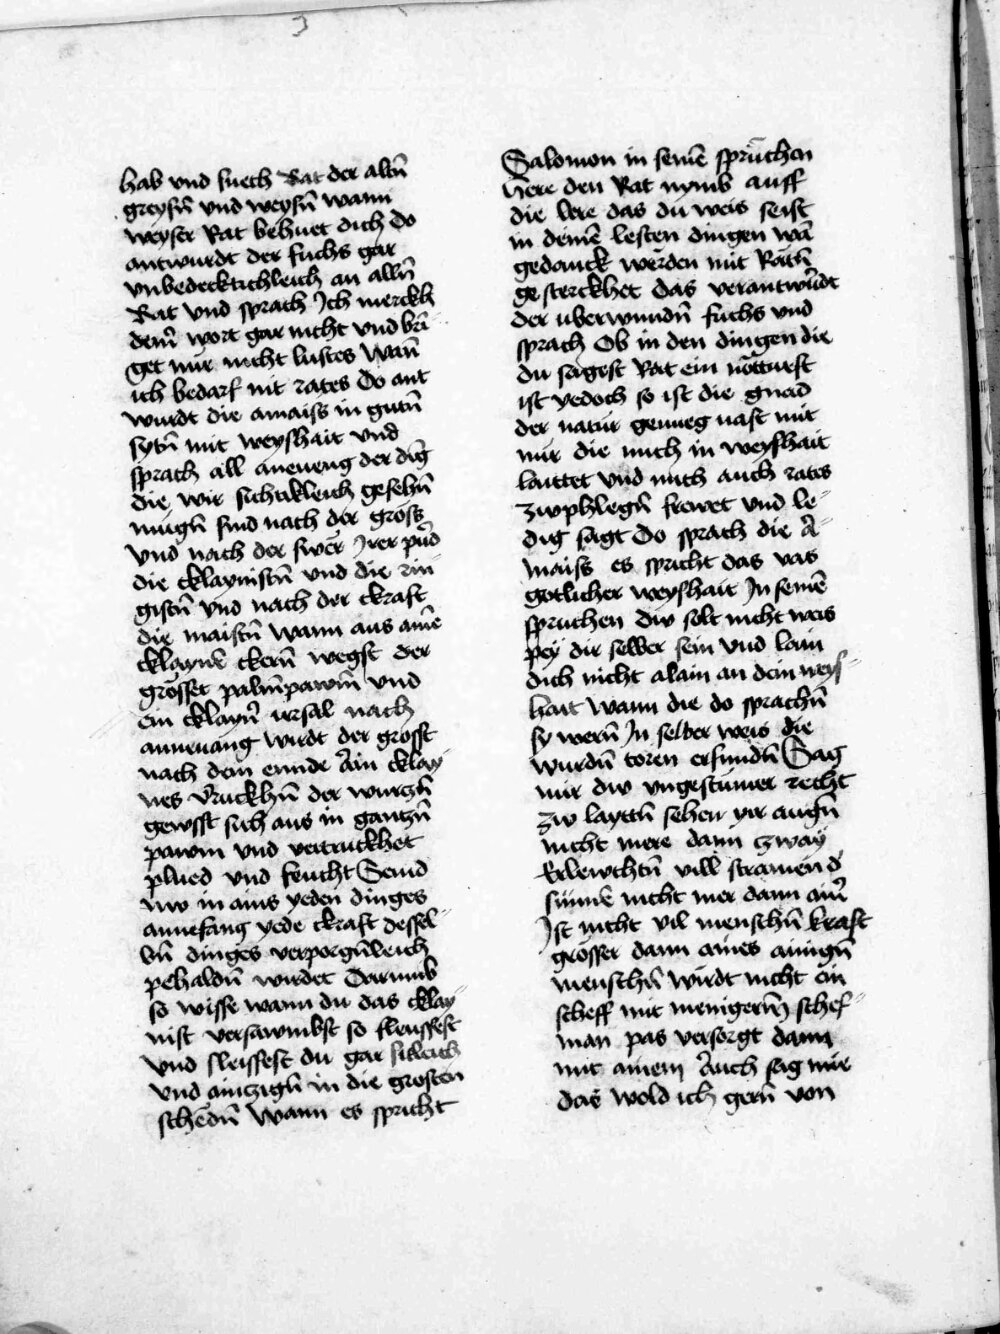 3
hab vnd suech Rat der altn̄
greysn̄ vnd weysn̄ wann
weyser Rat behuet dich Do
antwurdt der fuchs gar
vnbedecktichleich an alln̄
Rat vnd sprach Ich merckh
dein̄ wort gar nicht vnd brī
get mir nicht lustes Wan̄
ich bedarf nit rates Do ant
wurdt die amaiss in gutn̄
sytn̄ mit weyshait vnd
sprach all aneueng der dīg
die wir sichtikleich gesehn̄
mügn̄ sind nach der gröss
vnd nach der swer Irer pūrd
die cklaynistn̄ vnd die rin
gistn̄ vnd nach der ckraft
die maistn̄ Wann aus aine
cklaynē ckern̄ wegst der
grösset palm̄pawm̄ vnd
ein cklayn̄ ursal nach
anneuang wirdt der grosst
nach dem ennde Ain cklay
nes Vruckhn̄ der wurczn̄
gewsst sich aus in gantzn̄
pawm vnd vertruckhet
plued vnd feucht Seind
nw in ains yeden dinges
annefang yede ckraft dessel
bn̄ dinges verporgn̄leich
pehaldn̄ wirdet Darumb
so wisse wann du das cklay
nist versawmbst so fleussest
vnd sleissest du gar sitleich
vnd ainczign̄ in die grosten
schedn̄ Wann es spricht
Salomon in seinē sprüchen
Here den Rat nymb auff
die lere das du weis seist
in deinē lesten dingen wā
gedanck werden mit Rātn̄
gesterckhet das verantwurdt
der vberwundn̄ fuchs vnd
sprach Ob in den dingen die
du sagest Rat ein nötturft
ist yedoch so ist die gnad
der natur genueg vast mit
mir die mich in weyshait
lauttet vnd mich auch rates
zwphlegn̄ frewet vnd le
dig sagt Do sprach die A
maiss es spricht das vas
gotlicher weyshait In seinē
spruchen diw solt nicht weis
pey dir selber sein vnd lain
dich nicht alain an dein weys
hait Wann die do sprachn̄
sy wern̄ In selber weis die
wurdn̄ toren erfundn̄ Sag
mir diw vngestümer recht
zw layttn̄ sehen vir augn̄
nicht mere dann czway
Erlewchtn̄ vill stramen d'
sunnē nicht mer dann ain̄
Ist nicht vil menschn̄ kraft
grösser dann aines ainign̄
menschn̄ Wirdt nicht ein
scheff mit menigerm̄ schef
man pas versorgt dann
mit ainem Auch sag mir
das wold ich gern̄ von